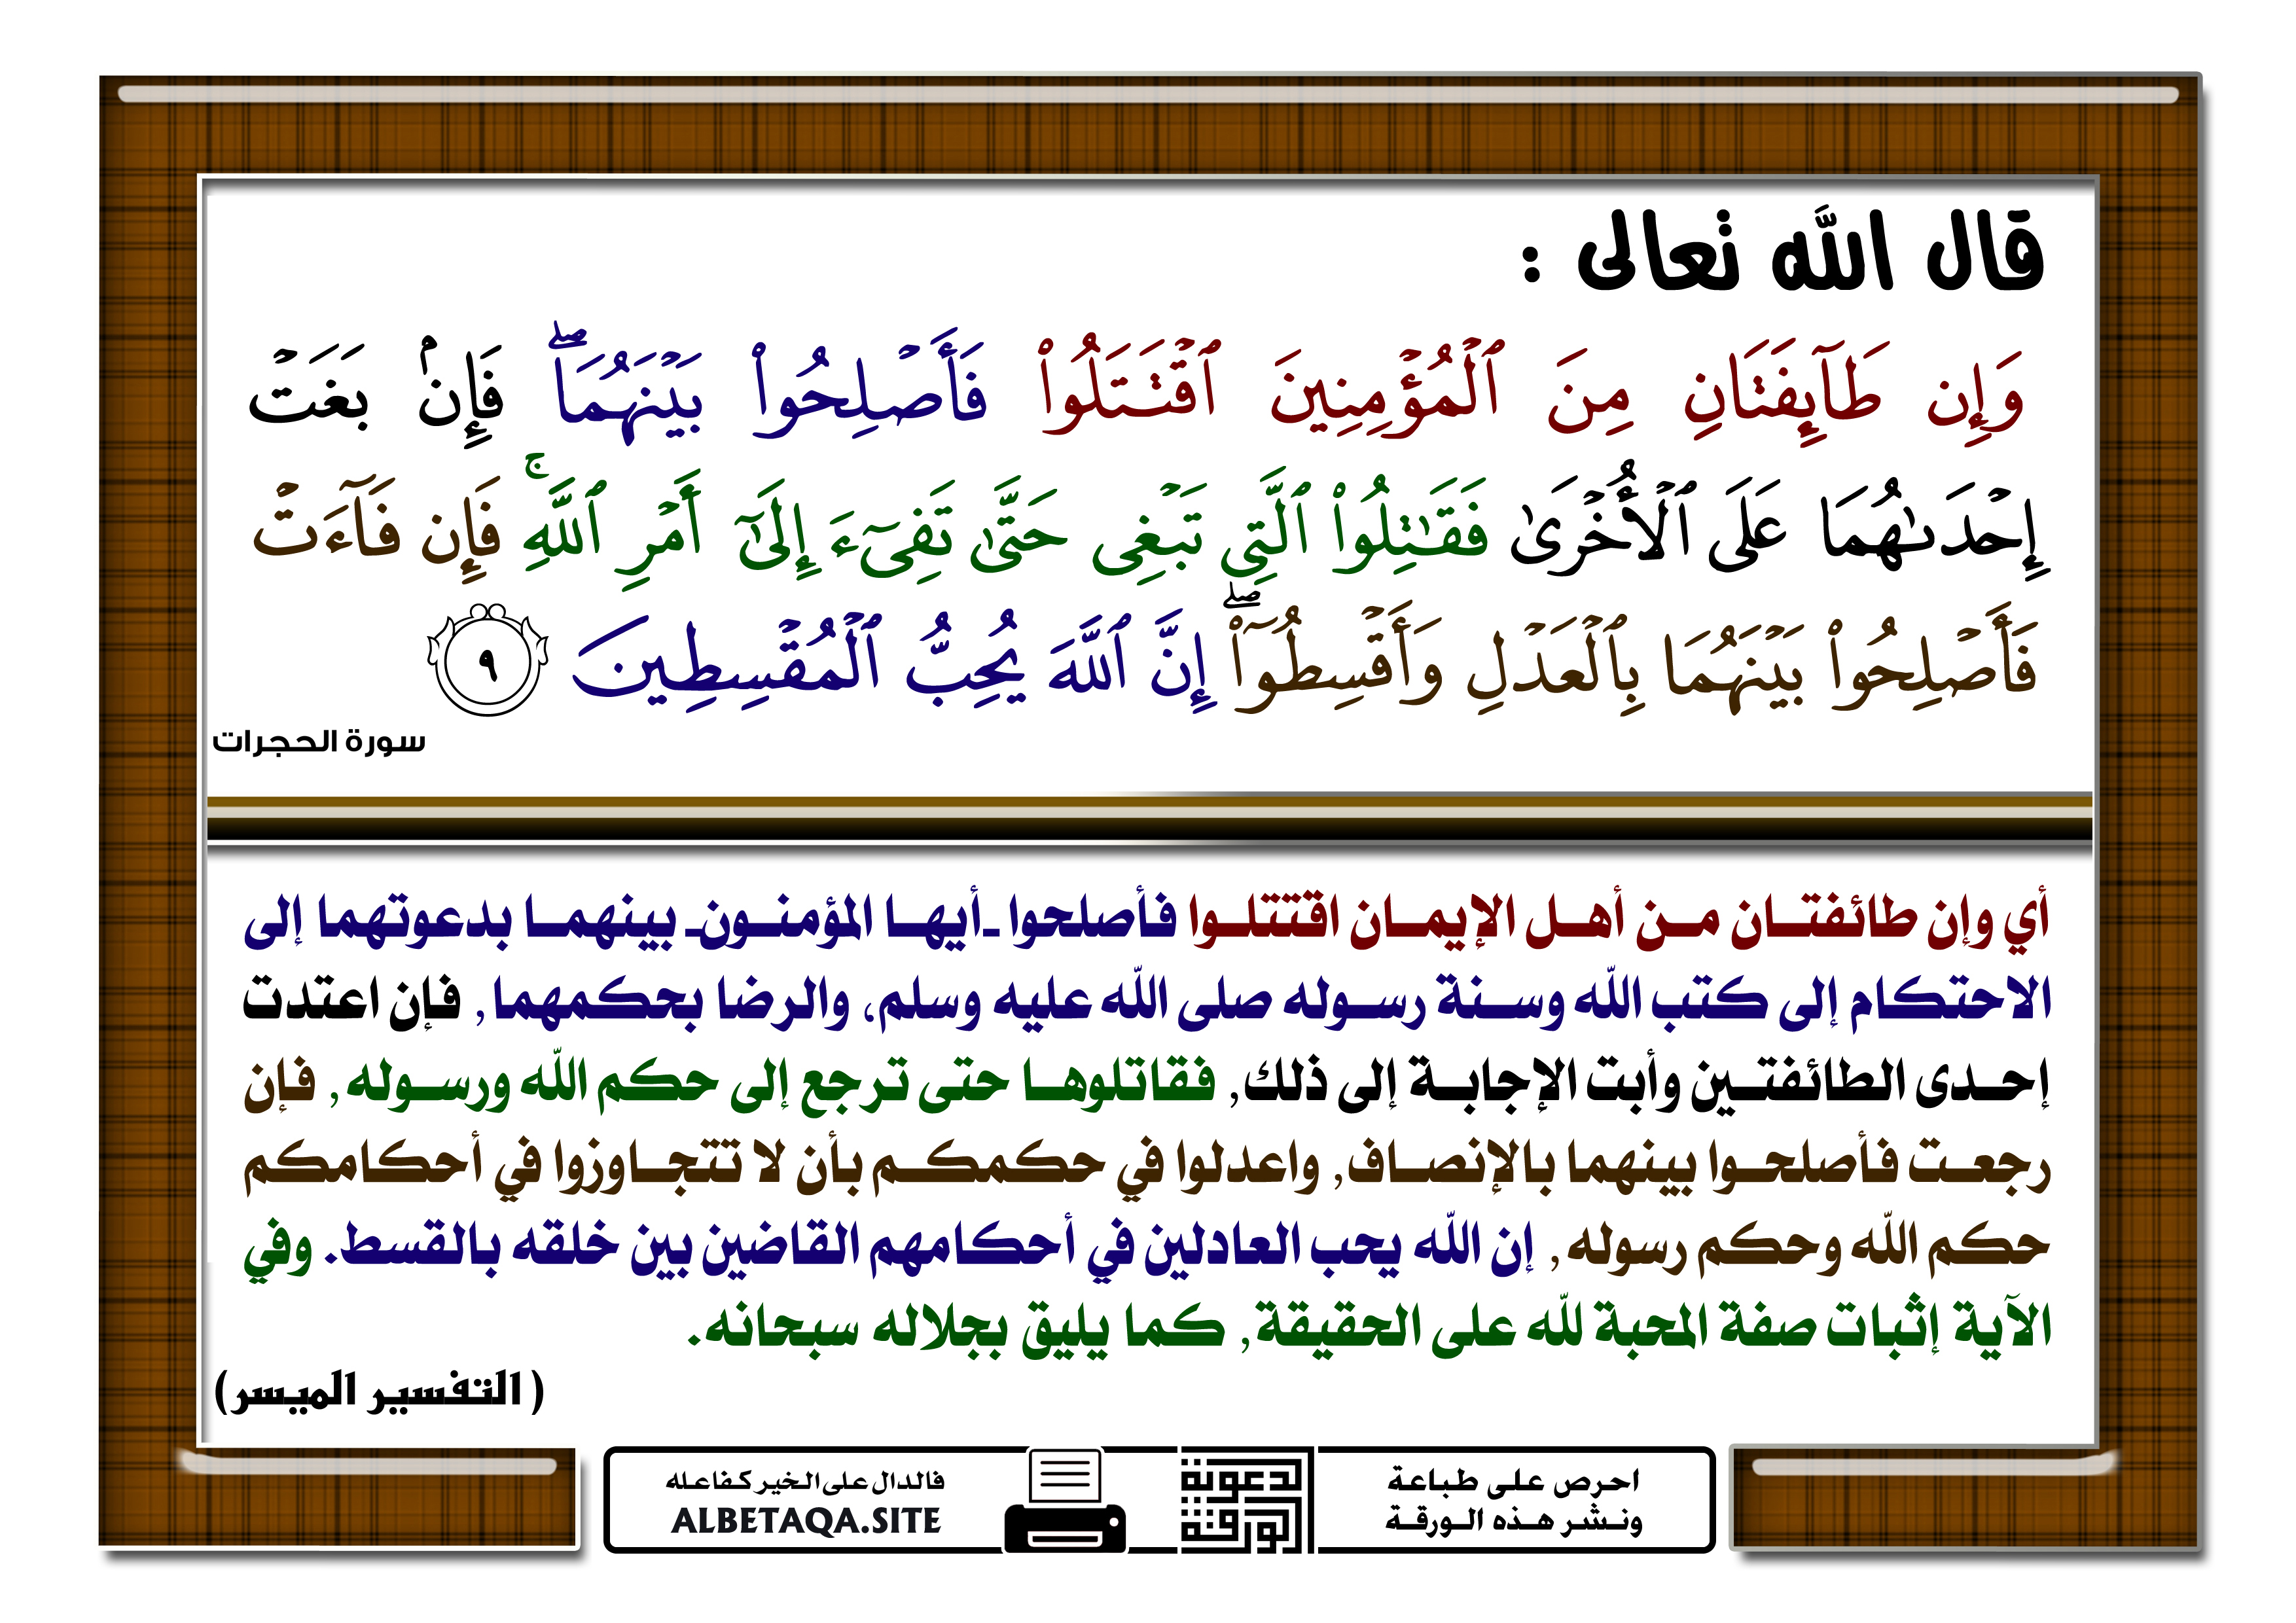 قال الله تعالى :
وَإِن طَآئِفَتَانِ مِنَ ٱلۡمُؤۡمِنِينَ ٱقۡتَتَلُواْ فَأَصۡلِحُواْ بَيۡنَهُمَاۖ فَإِنۢ بَغَتۡ
إِحۡدَىٰهُمَا عَلَى ٱلۡأُخۡرَىٰ فَقَٰتِلُواْ ٱلَّتِي تَبۡغِي حَتَّىٰ تَفِيٓءَ إِلَىٰٓ أَمۡرِ ٱللَّهِۚ فَإِن فَآءَتۡ
فَأَصۡلِحُواْ بَيۡنَهُمَا بِٱلۡعَدۡلِ وَأَقۡسِطُوٓاْۖ إِنَّ ٱللَّهَ يُحِبُّ ٱلۡمُقۡسِطِينَ ٩
سورة الحجرات
أي وإن طائفتان من أهل الإيمان اقتتلوا فأصلحوا -أيها المؤمنون- بينهما بدعوتهما إلى
الاحتكام إلى كتب الله وسنة رسوله صلى الله عليه وسلم، والرضا بحكمهما, فإن اعتدت
إحدى الطائفتين وأبت الإجابة إلى ذلك, فقاتلوها حتى ترجع إلى حكم الله ورسوله, فإن
رجعت فأصلحوا بينهما بالإنصاف, واعدلوا في حكمكم بأن لا تتجاوزوا في أحكامكم
حكم الله وحكم رسوله, إن الله يحب العادلين في أحكامهم القاضين بين خلقه بالقسط. وفي
الآية إثبات صفة المحبة لله على الحقيقة, كما يليق بجلاله سبحانه.
( التفسير الميسر)
احرص على طباعة
ونشر هذه الورقة
الدعوية
الورقة
فالدال على الخير كفاعله
ALBETAQA.SITE